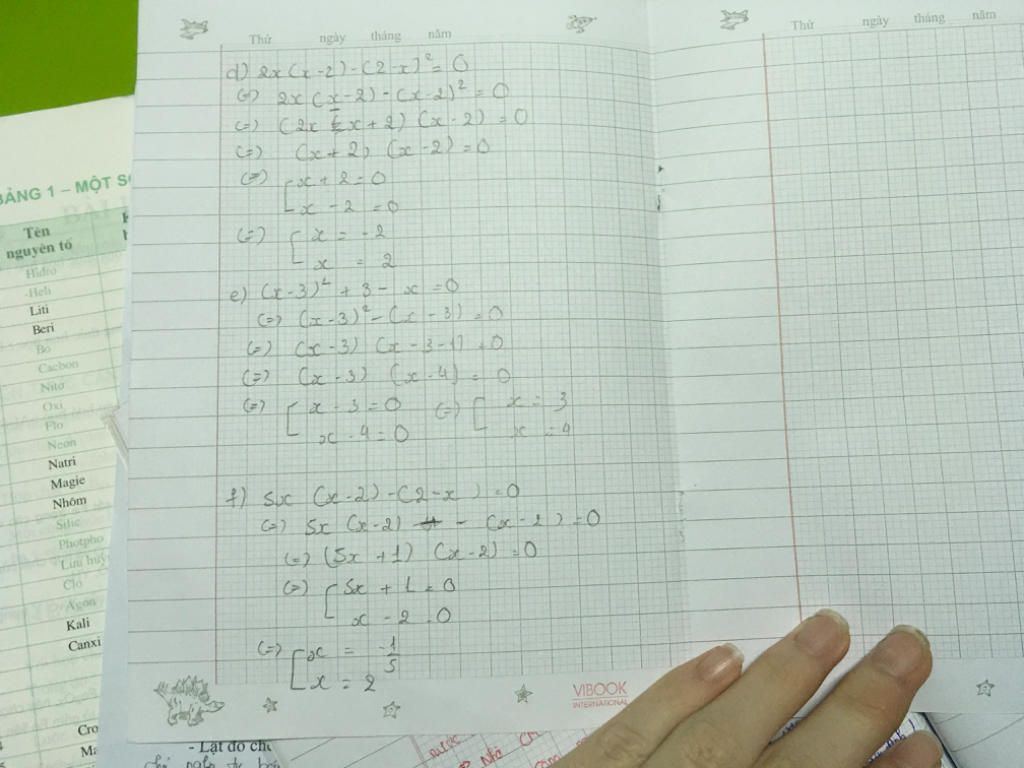 Thứ ngày tháng năm
Thứ ngày tháng năm
d) 2x(x-2)-(2-x)² = 0
(=) 2x(x-2)-(x-2)² = 0
(=) (2x-x+2)(x-2) = 0
(=) (x+2)(x-2) = 0
(=) [x+2=0
x-2=0
(=) [x = -2
x = 2
e) (x-3)² + 3 - x = 0
(=) (x-3)² - (x-3) = 0
(=) (x-3) (x-3-1) = 0
(=) (x-3) (x-4) = 0
(=) [x-3=0 (=) [x = 3
x-4=0 x = 4
f) 5x (x-2)-(2-x) = 0
(=) 5x (x-2) - (x-2) = 0
(=) (5x+1) (x-2) = 0
(=) [5x+1=0
x-2=0
(=) [x = -1/5
x = 2
VIBOOK
INTERNATIONAL
BẢNG 1 – MỘT SỐ
Tên
nguyên tố
Hiđro
Heli
Liti
Beri
Bo
Cacbon
Nitơ
Oxi
Flo
Neon
Natri
Magie
Nhôm
Silic
Photpho
Lưu huỳ
Clo
Agon
Kali
Canxi
Cro
Ma
- Lật đổ chế